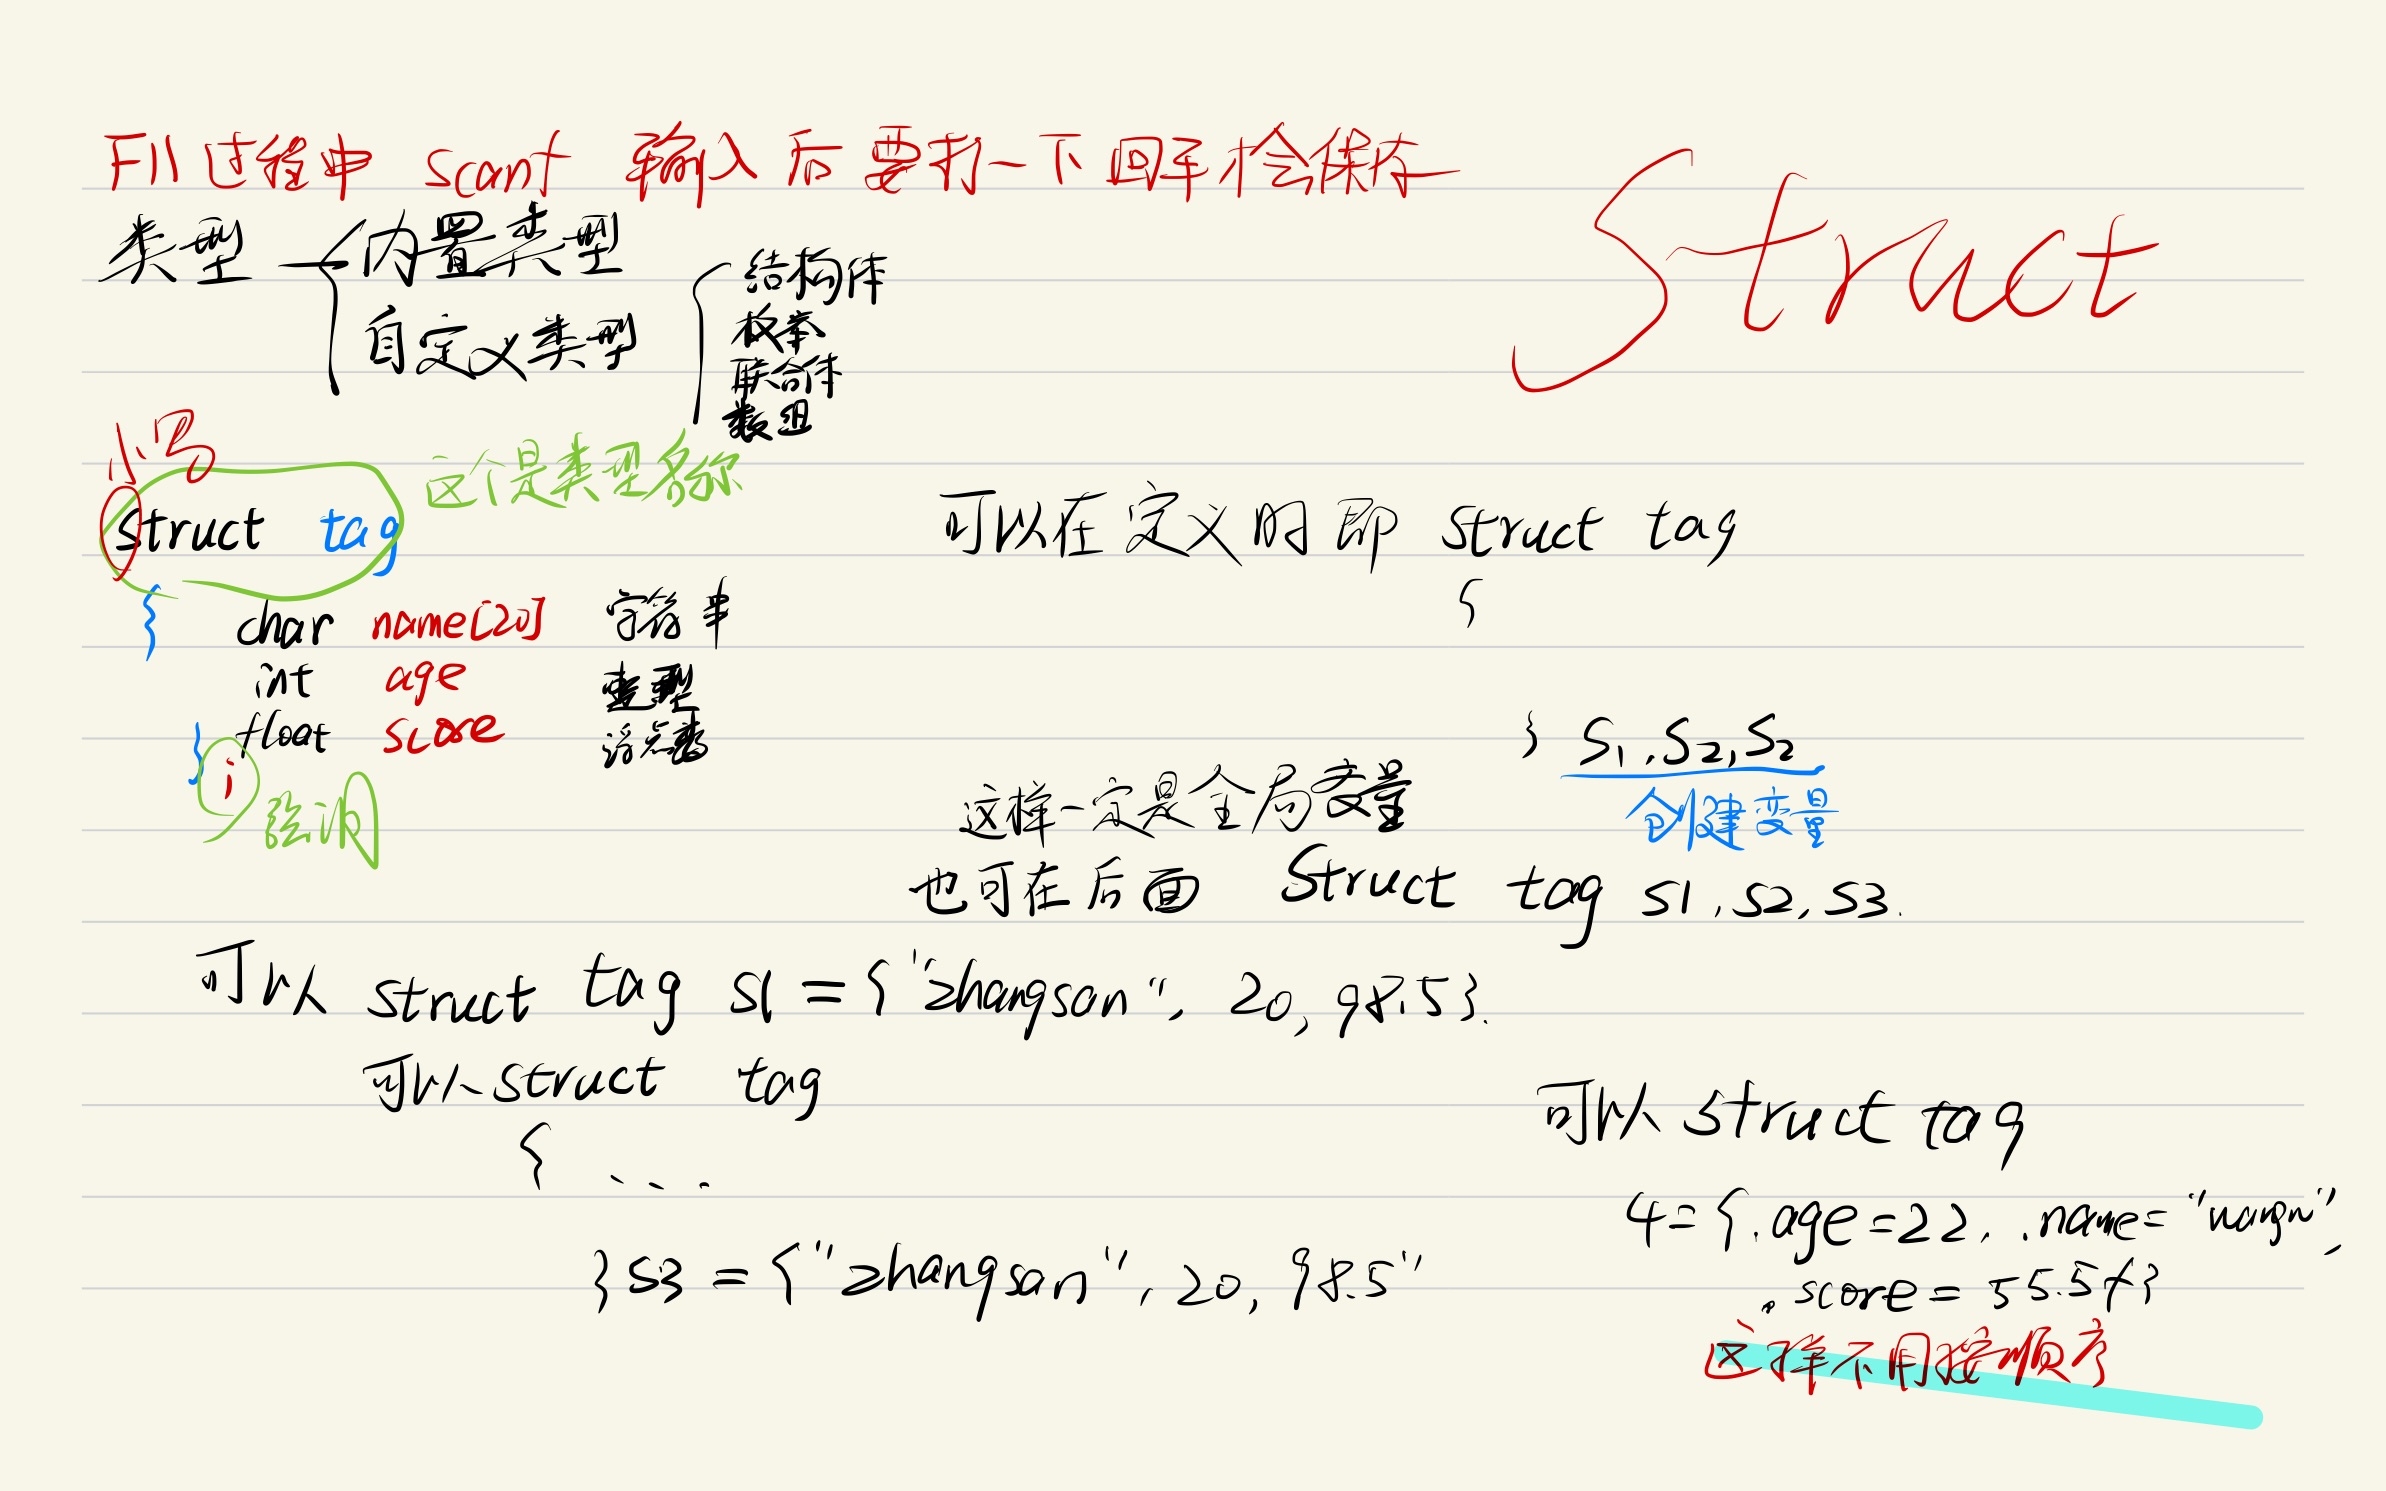 F11过程中 scanf 输入后要打一下回车才会保存
Struct
类型 { 内置类型
自定义类型 { 结构体
枚举
联合体
数组
小写
struct tag 这个是类型名称
{
char name[20] 字符串
int age 整型
float score 浮点数
} ;
可以在定义时即 struct tag
{
} S1,S2,S2
创建变量
这样一定是全局变量
也可在后面 Struct tag S1,S2,S3.
可以 struct tag S1 = {"zhangsan", 20, 98.5}.
可以 struct tag
{ ....
} S3 = {"zhangsan", 20, 98.5"
可以 struct tag
4= {.age=22, .name=
.score = 55.5f}
这样不用按顺序